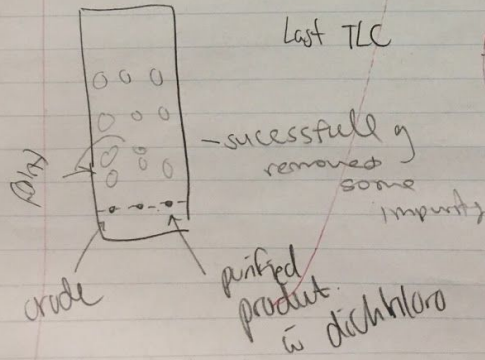 Last TLC
- sucessfull y
removed
some
impurity
crude
purified
product
in dichloro